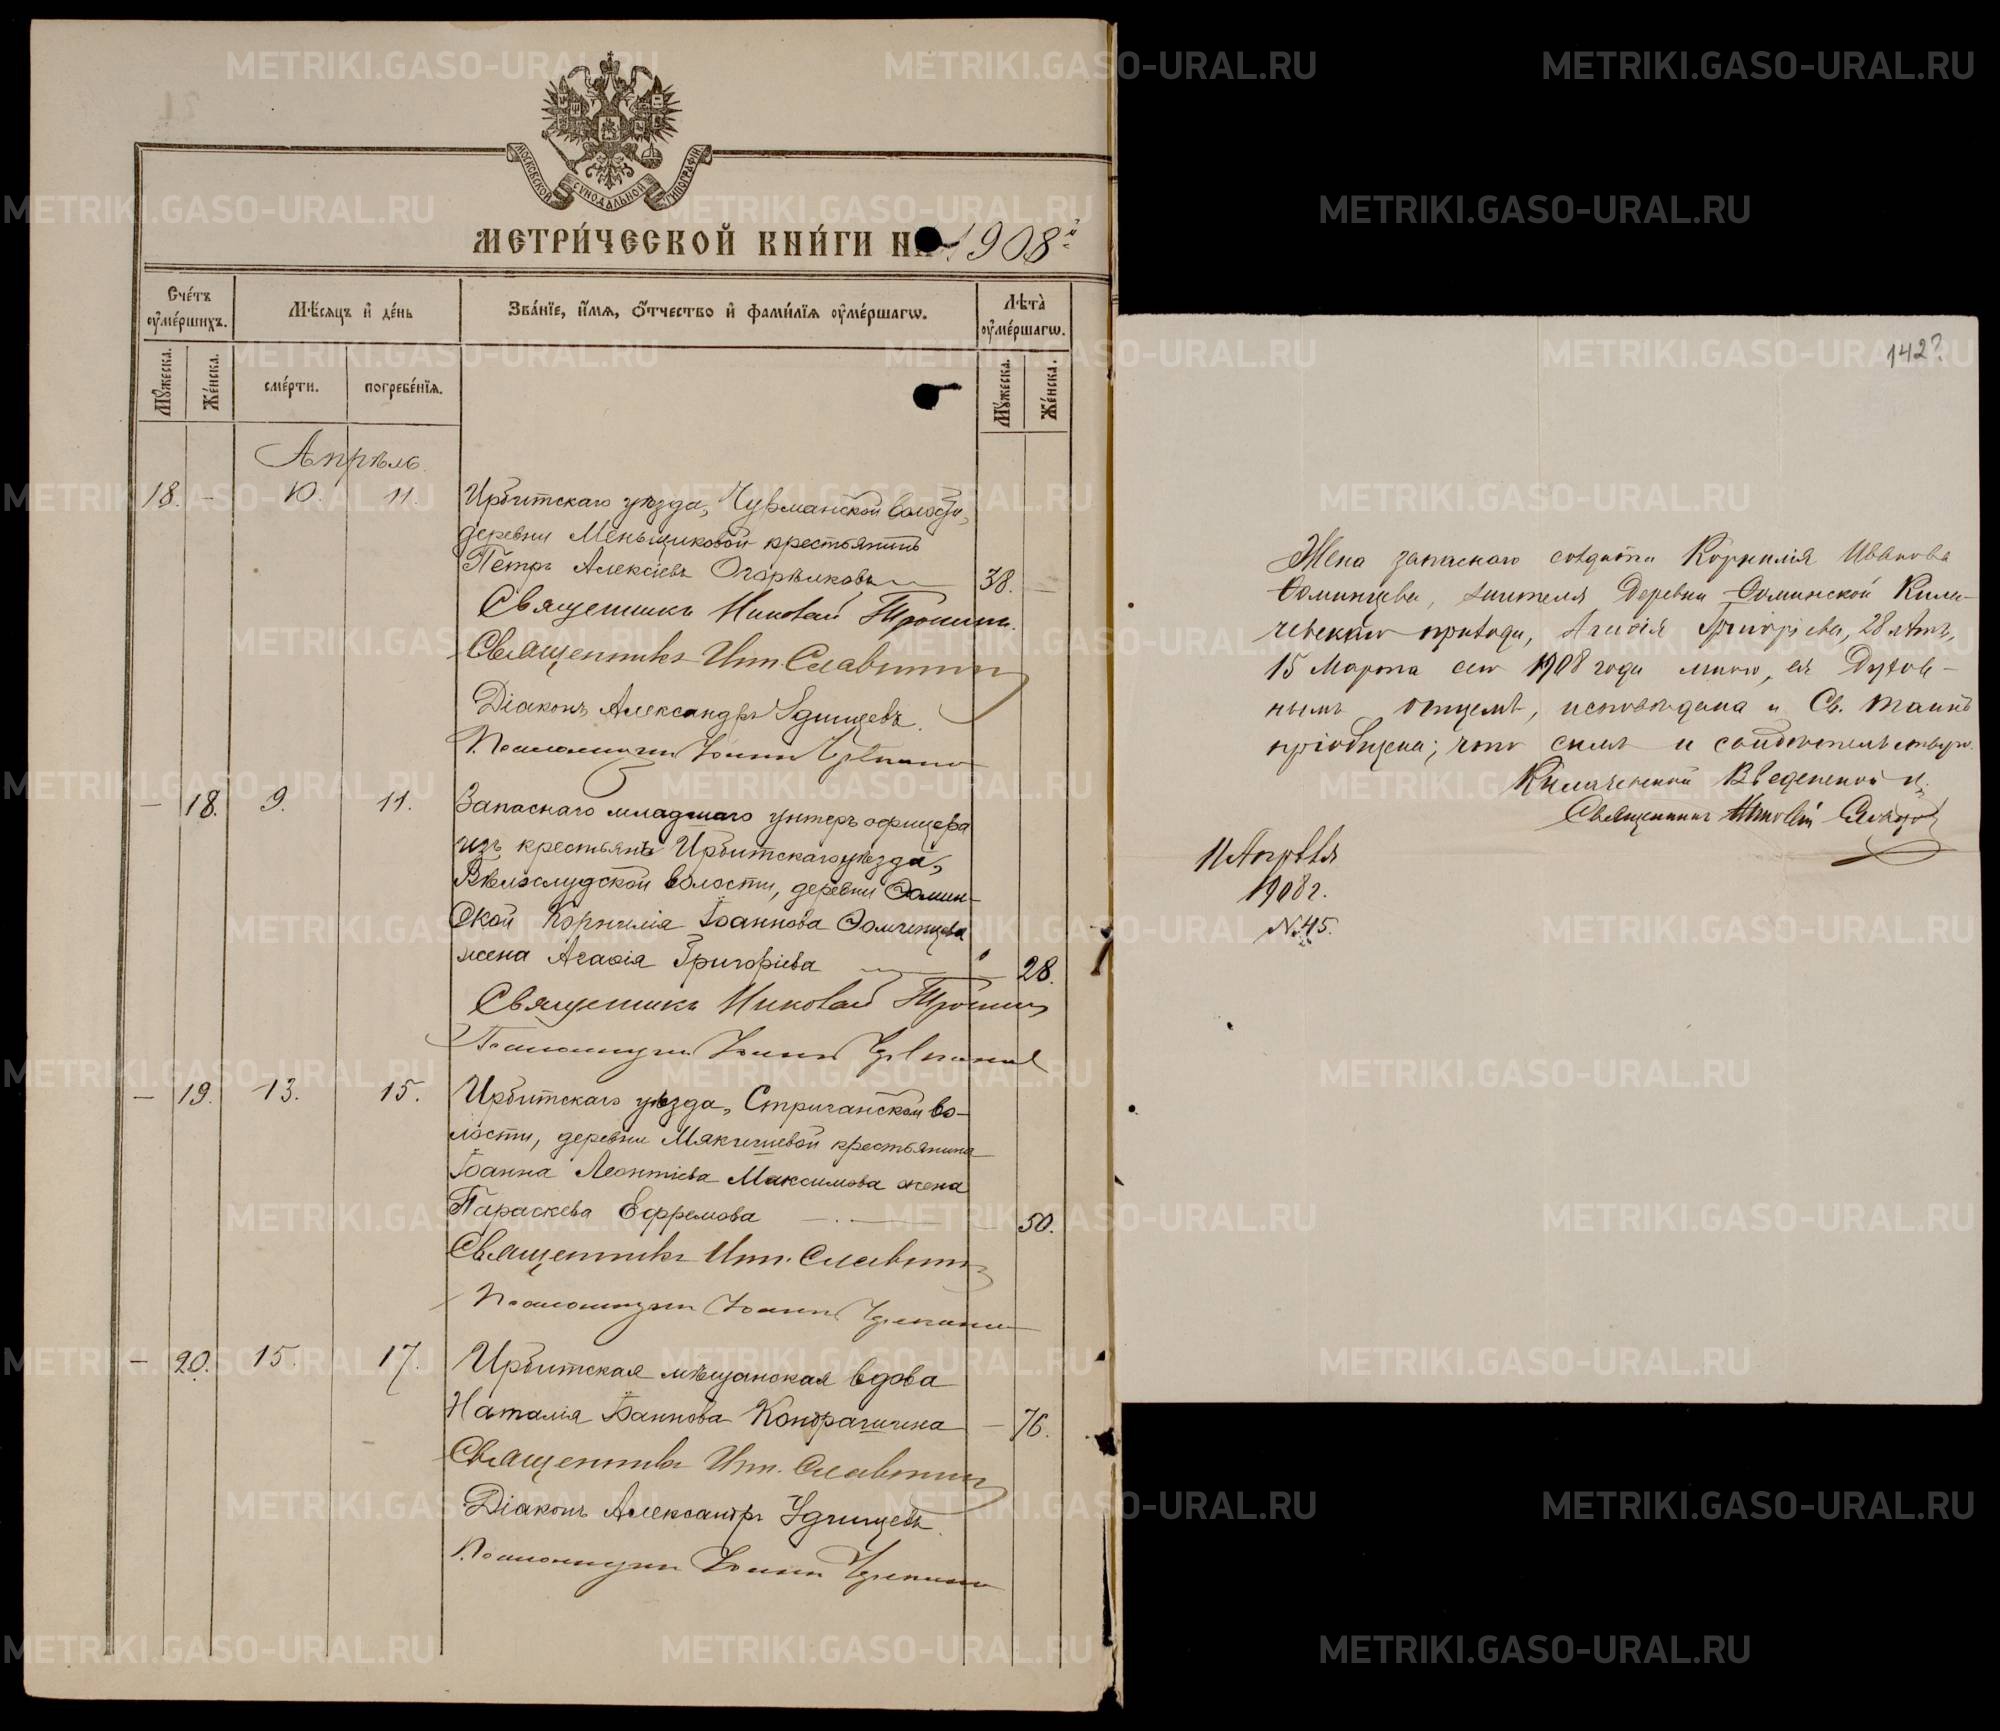 МОСКОВСКОЙ СѴНОДАЛЬНОЙ ТИПОГРАФІИ
МЕТРИ́ЧЕСКОЙ КНИ́ГИ НА 1908й
Сче́тъ оу҆ме́ршихъ.
Мѣ́сяцъ и҆ де́нь
Зва́нїе, и҆́мѧ, ѻ҆́тчество и҆ фами́лїѧ оу҆ме́ршагѡ.
Лѣта̀ оу҆ме́ршагѡ.
Мꙋ́жеска.
Же́нска.
сме́рти.
погребе́нїѧ.
Мꙋ́жеска.
Же́нска.
Апрѣль
18. - 10. 11. Ирбитскаго уѣзда, Чурманской волости,
деревни Меньщиковой крестьянинъ
Петръ Алексіевъ Огорѣлковъ 38. —
Священникъ Николай Тронинъ.
Священникъ Инн. Славнинъ
Діаконъ Александръ Удинцевъ.
Псаломщикъ Іоаннъ
— 18. 9. 11. Запаснаго младшаго унтеръ офицера
изъ крестьянъ Ирбитскаго уѣзда,
Бѣлослудской волости, деревни Ѳомин-
ской Корнилія Іоаннова Ѳоминцева
жена Агаѳія Григоріева — 28.
Священникъ Николай Тронинъ
Псаломщикъ Іоаннъ
— 19. 13. 15. Ирбитскаго уѣзда, Стриганской во-
лости, деревни Мякишевой крестьянина
Іоанна Леонтіева Максимова жена
Параскева Ефремова — 50.
Священникъ Инн. Славнинъ
Псаломщикъ Іоаннъ
— 20. 15. 17. Ирбитская мѣщанская вдова
Наталія Іоаннова — 76.
Священникъ Инн. Славнинъ
Діаконъ Александръ Удинцевъ.
Псаломщикъ Іоаннъ
142?
Жена запаснаго солдата Корнилія Иванова
Ѳоминцева, жителя Деревни Ѳоминской Кила-
чевскаго прихода, Агаѳія Григорьева, 28 лѣтъ,
15 Марта сего 1908 года мною, ея Духов-
нымъ отцемъ, исповѣдана и Св. Таинъ
пріобщена; что симъ и свидѣтельствую.
Килачевской Введенской ц.
Священникъ
11 Апрѣля
1908 г.
№ 45.
METRIKI.GASO-URAL.RU